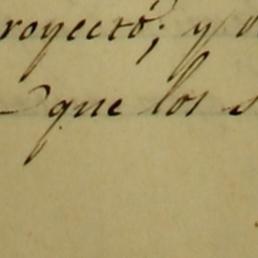 royecto; y
que los